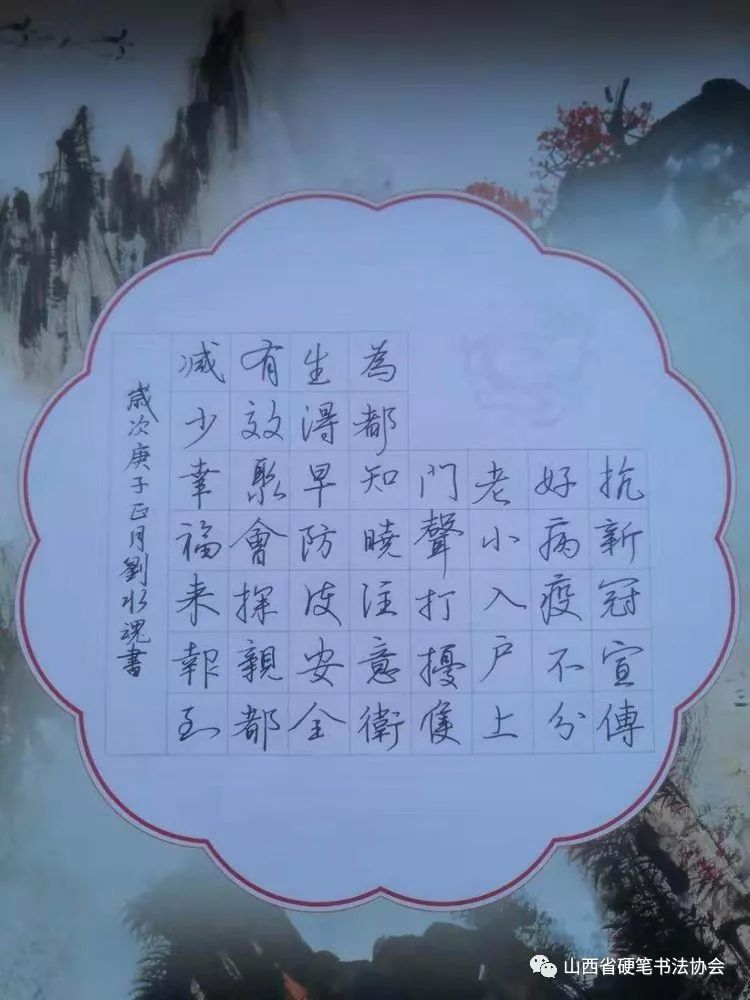 抗新冠宣傳
好病疫不分
老小入户上
門聲打擾
為都知曉注意衛
生得早防安全
有效聚會探親都
減少幸福来報到
歲次庚子正月劉水魂書
山西省硬笔书法协会